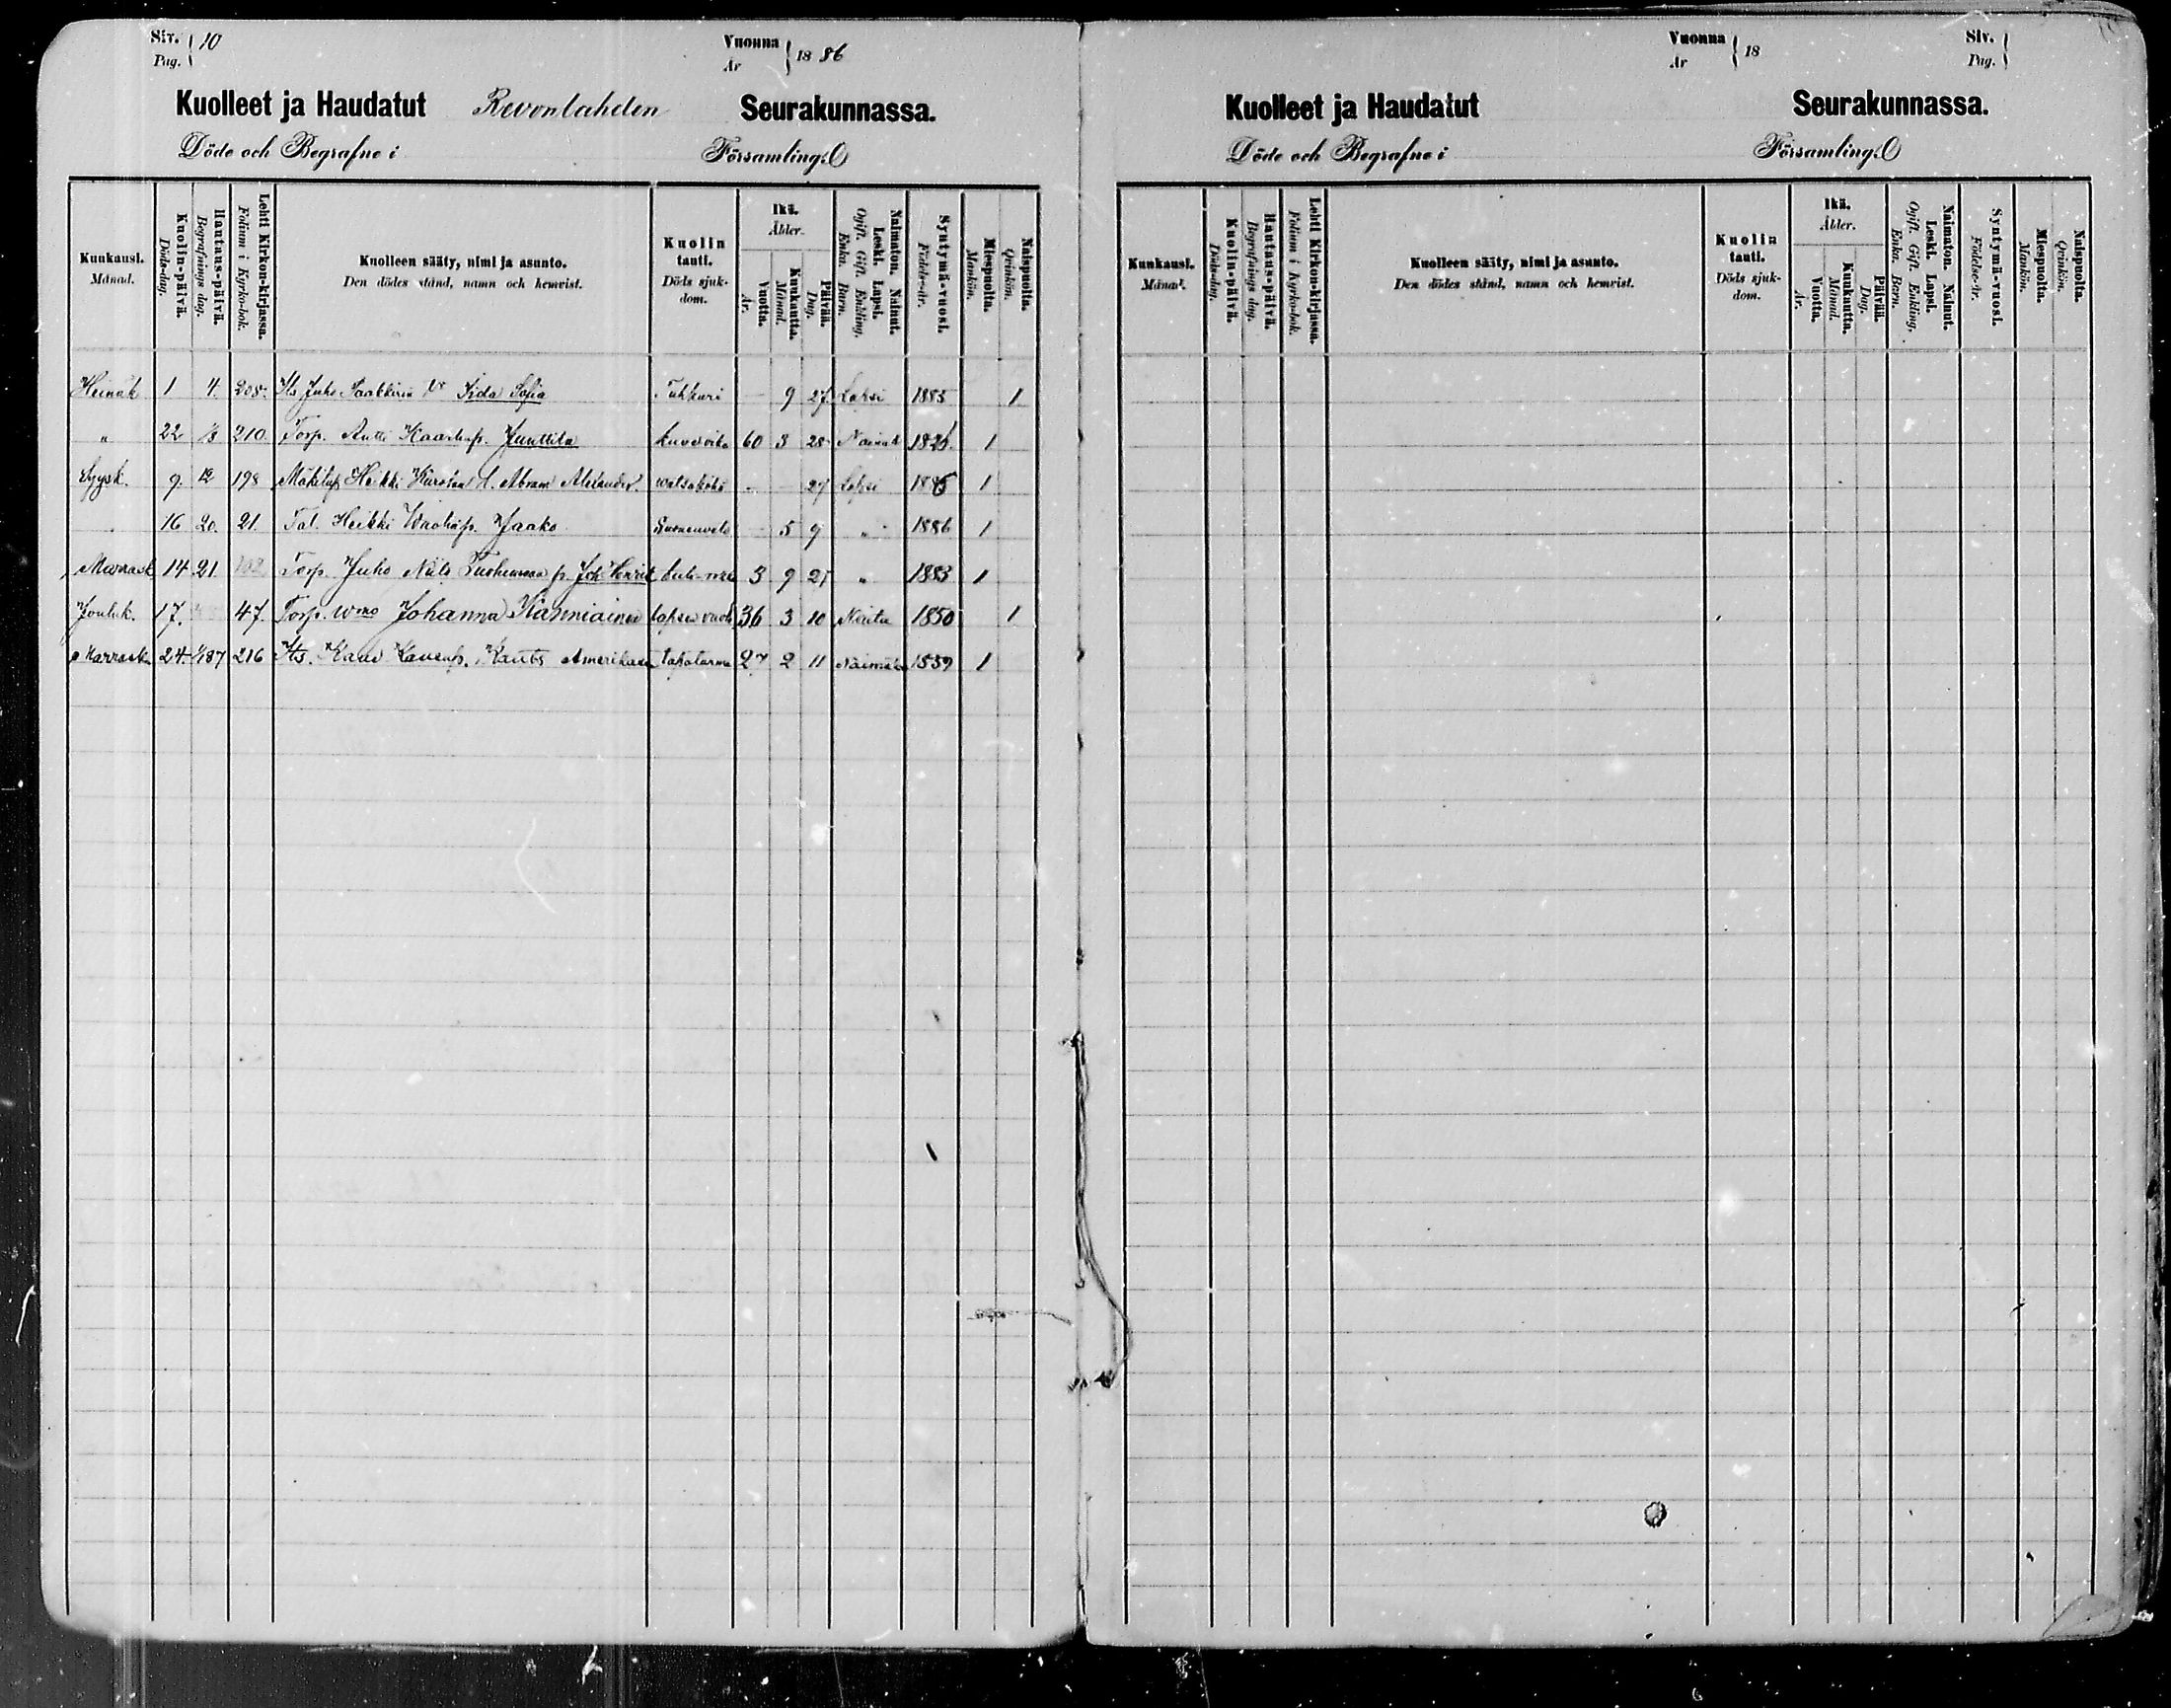 Siv. 10
Pag.
Vuonna 1886
År
Kuolleet ja Haudatut Revonlahden Seurakunnassa.
Döde och Begrafne i Församling.
Kuukausi. Månad.
Kuolin-päivä. Döds-dag.
Hautaus-päivä. Begrafnings dag.
Lehti Kirkon-kirjassa. Folium i Kyrko-bok.
Kuolleen sääty, nimi ja asunto.
Den dödes stånd, namn och hemvist.
Kuolin tauti. Döds sjuk-dom.
Ikä. Ålder.
Vuotta. År.
Kuukautta. Månad.
Päivää. Dag.
Naimaton. Nainut. Leski. Lapsi. Ogift. Gift. Enkling. Enka. Barn.
Syntymä-vuosi. Födelse-år.
Miespuolta. Mankön.
Naispuolta. Qvinkön.
Heinäk 1 4. 208. Its Juho Iida Sofia Tuhkuri 9 27 Lapsi 1885 1
" 22 1/8 210. Torp. Antti Junttila 60 3 28 Nainut 1
Syysk. 9. 12 198 Heikki Abram Alexander. 27 Lapsi 1886 1
16 20. 21. Tal. Heikki Jaako 5 9 " 1886 1
Marrask 14 21 Torp. Juho Joh Henrik 3 9 25 " 1883 1
Jouluk. 17. 47. Torp. Johanna Kanniainen 36 3 10 1850 1
Marrask 24. 1/187 216 Its. Amerikassa tapaturma 27 2 11 1859 1
Vuonna 18
År
Siv.
Pag.
Kuolleet ja Haudatut Seurakunnassa.
Döde och Begrafne i Församling.
Kuukausi. Månad.
Kuolin-päivä. Döds-dag.
Hautaus-päivä. Begrafnings dag.
Lehti Kirkon-kirjassa. Folium i Kyrko-bok.
Kuolleen sääty, nimi ja asunto.
Den dödes stånd, namn och hemvist.
Kuolin tauti. Döds sjuk-dom.
Ikä. Ålder.
Vuotta. År.
Kuukautta. Månad.
Päivää. Dag.
Naimaton. Nainut. Leski. Lapsi. Ogift. Gift. Enkling. Enka. Barn.
Syntymä-vuosi. Födelse-år.
Miespuolta. Mankön.
Naispuolta. Qvinkön.